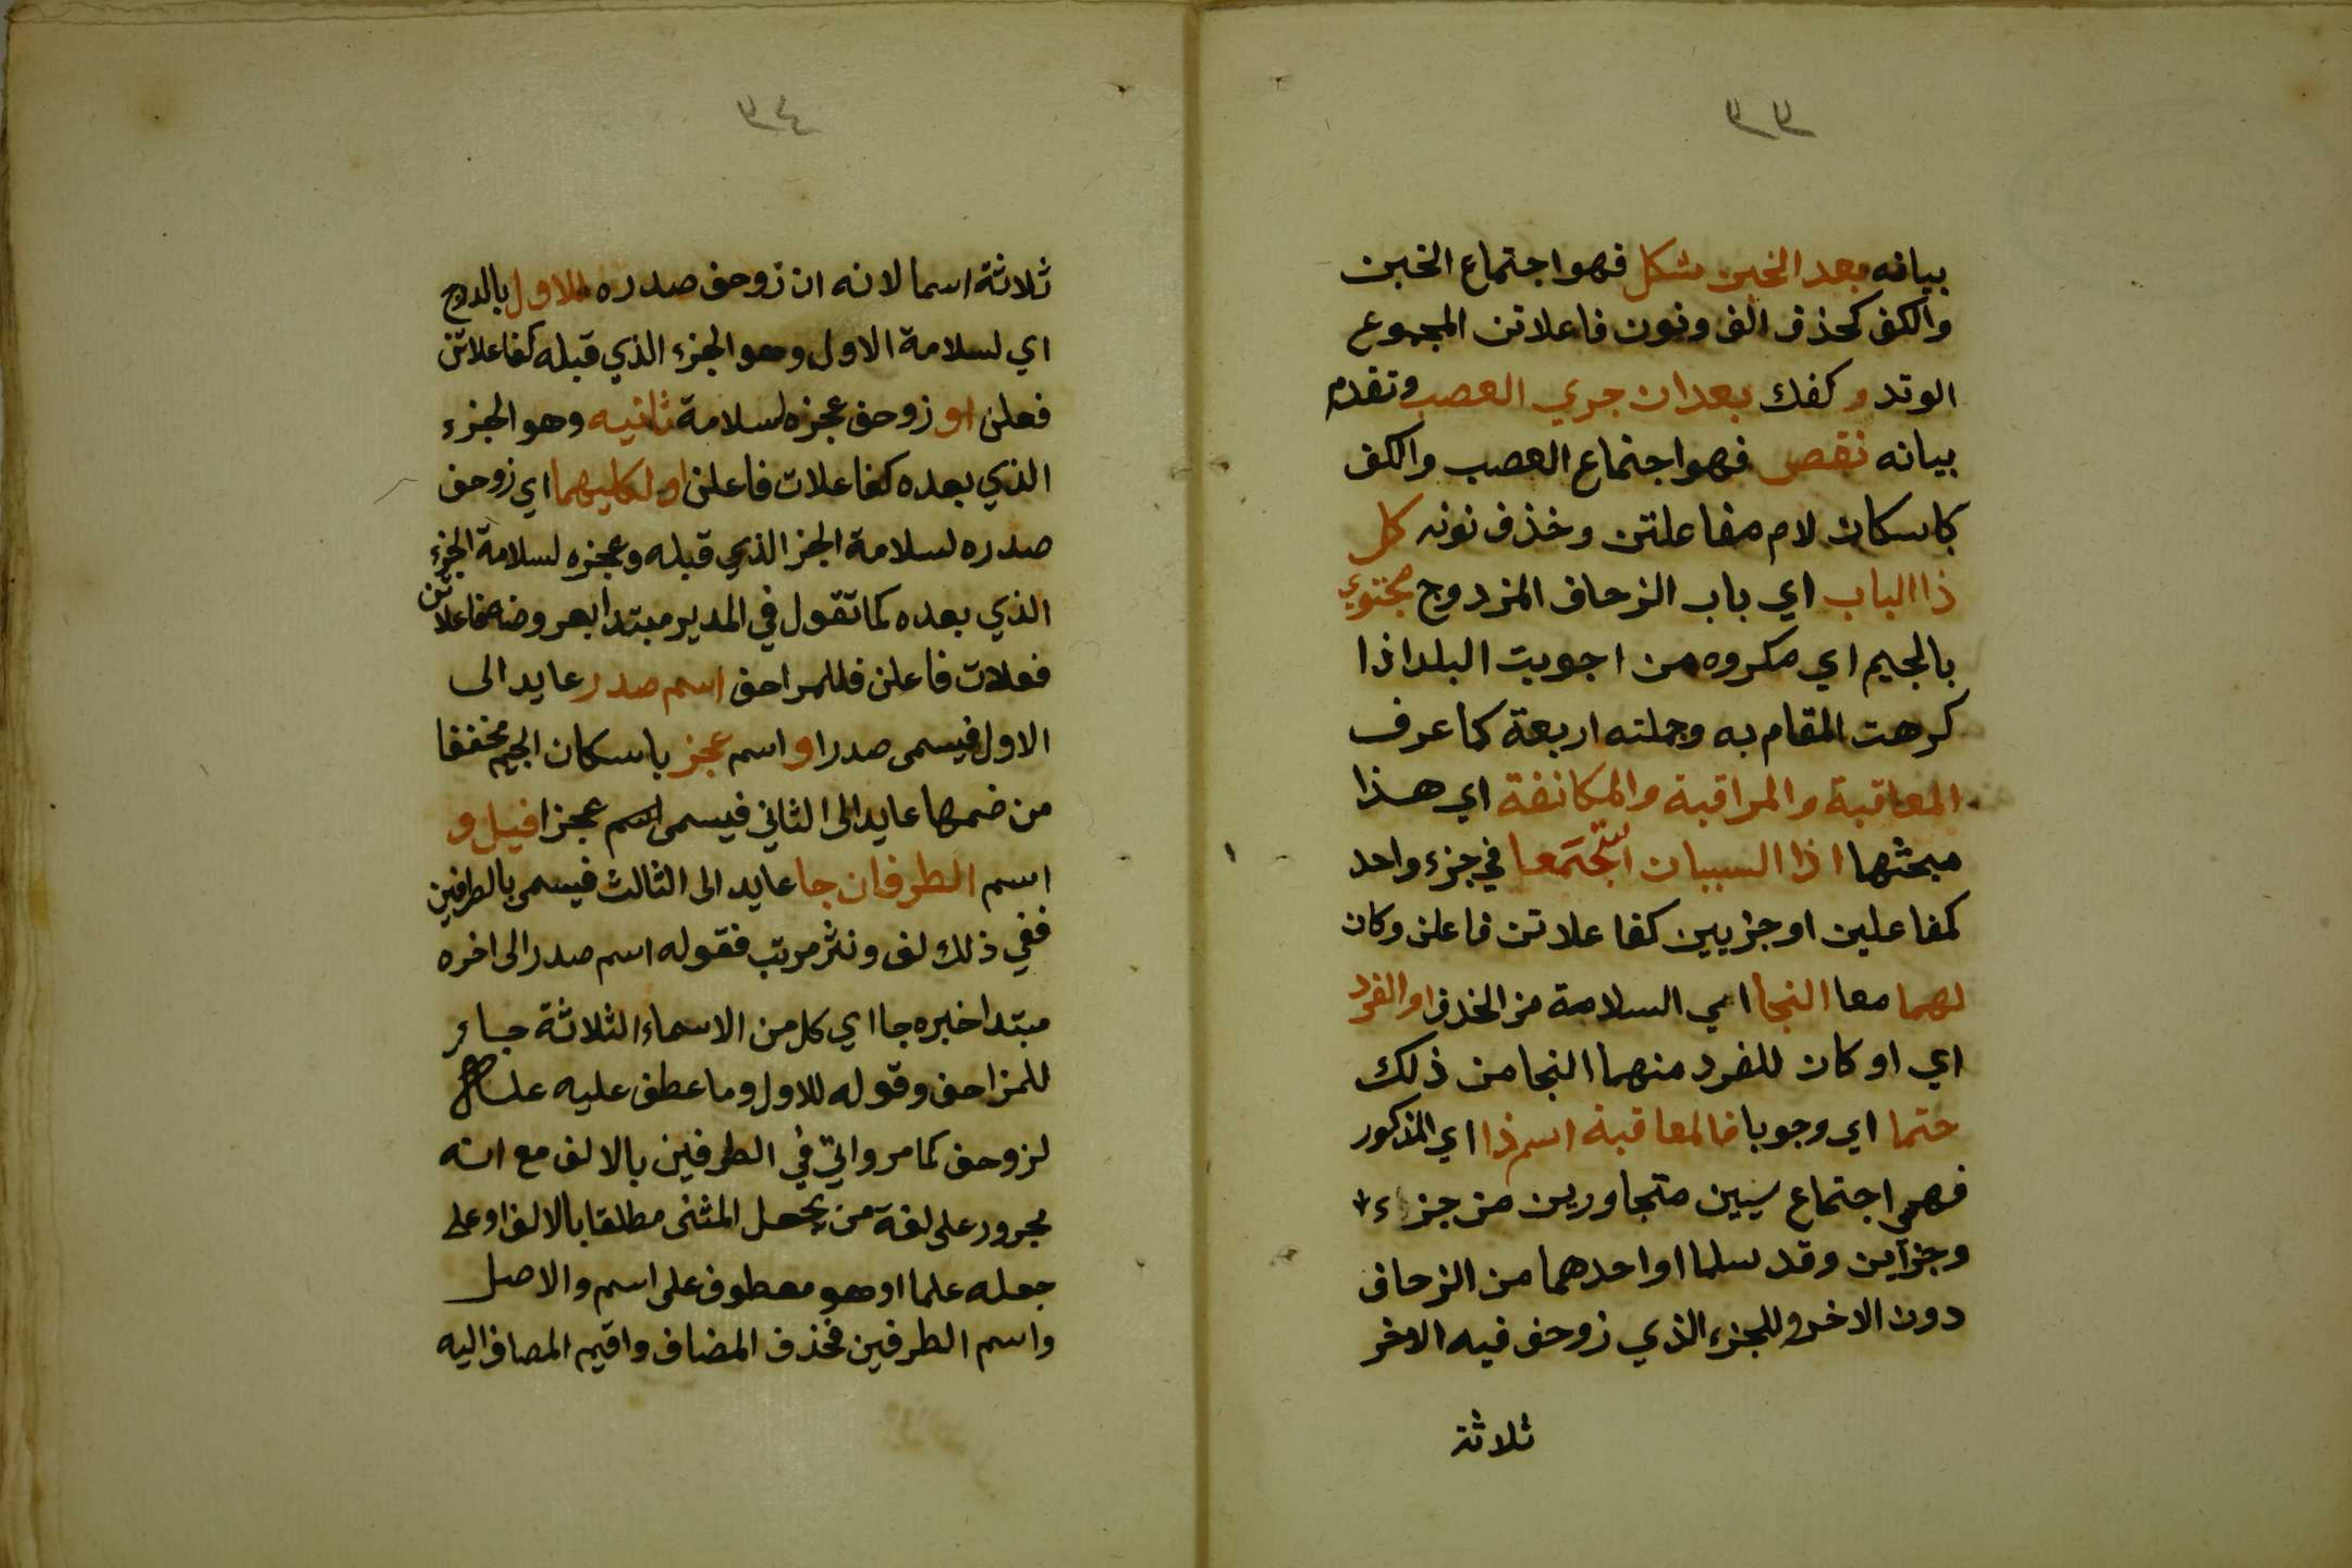 ٣٣
بيانه بعد الخبن شكل فهو اجتماع الخبن
والكف كحذف الف ونون فاعلاتن المجموع
الوتد وكفك بعد ان جري العصب وتقدم
بيانه نقص فهو اجتماع العصب والكف
كاسكان لام مفاعلتن وخذف نونه كل
ذا الباب اي باب الزحاف المزدوج مجتوي
بالجيم اي مكروه من اجويت البلد اذا
كرهت المقام به وجملته اربعة كما عرف
المعاقبة والمراقبة والمكانفة اي هذا
مبحثها اذا السببان استجمعا في جزء واحد
كمفاعلين او جزيين كفاعلاتن فاعلن وكان
لهما معا النجا اي السلامة من الخذف او الفرد
اي او كان للفرد منهما النجا من ذلك
حتما اي وجوبا فالمعاقبة اسم ذا اي المذكور
فهي اجتماع سببين متجاورين من جزء
وجزاين وقد سلما او احدهما من الزحاف
دون الاخر وللجزء الذي زوحف فيه الاخر
ثلاثة
٣٤
ثلاثة اسما لانه ان زوحف صدره للاول بالدرج
اي لسلامة الاول وهو الجزء الذي قبله كفاعلاتن
فعلن او زوحف عجزه لسلامة ثانيه وهو الجزء
الذي بعده كفاعلات فاعلن او لكليهما اي زوحف
صدره لسلامة الجز الذي قبله وعجزه لسلامة الجزء
الذي بعده كما تقول في المديد مبتدا بعروضه فاعلاتن
فعلات فاعلن فللمزاحف اسم صدر عايد الى
الاول فيسمى صدرا او اسم عجز باسكان الجيم مخففا
من ضمها عايد الى الثاني فيسمى عجزا قيل و
اسم الطرفان جا عايد الى الثالث فيسمى بالطرفين
ففي ذلك لف ونثر مرتب فقوله اسم صدر الى اخره
مبتدا خبره جا اي كل من الاسماء الثلاثة جا و
للمزاحف وقوله للاول وما عطف عليه علة
لزوحف كما مر واتي في الطرفين بالالف مع انه
مجرور على لغة من يجعل المثنى مطلقا بالالف او على
جعله علما او هو معطوف على اسم والاصل
واسم الطرفين فخذف المضاف واقيم المضاف اليه